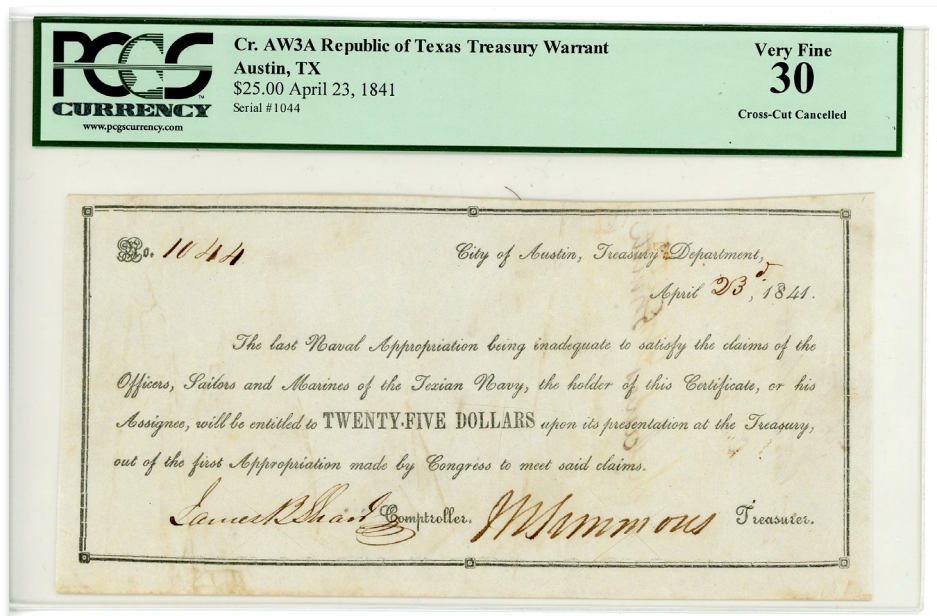 PCGS
CURRENCY
www.pcgscurrency.com
Cr. AW3A Republic of Texas Treasury Warrant
Austin, TX
$25.00 April 23, 1841
Serial #1044
Very Fine
30
Cross-Cut Cancelled
No. 1044
City of Austin, Treasury Department,
April 23d, 1841.
The last Naval Appropriation being inadequate to satisfy the claims of the
Officers, Sailors and Marines of the Texian Navy, the holder of this Certificate, or his
Assignee, will be entitled to TWENTY-FIVE DOLLARS upon its presentation at the Treasury,
out of the first Appropriation made by Congress to meet said claims.
James B Shaw Comptroller. W Simmons Treasurer.